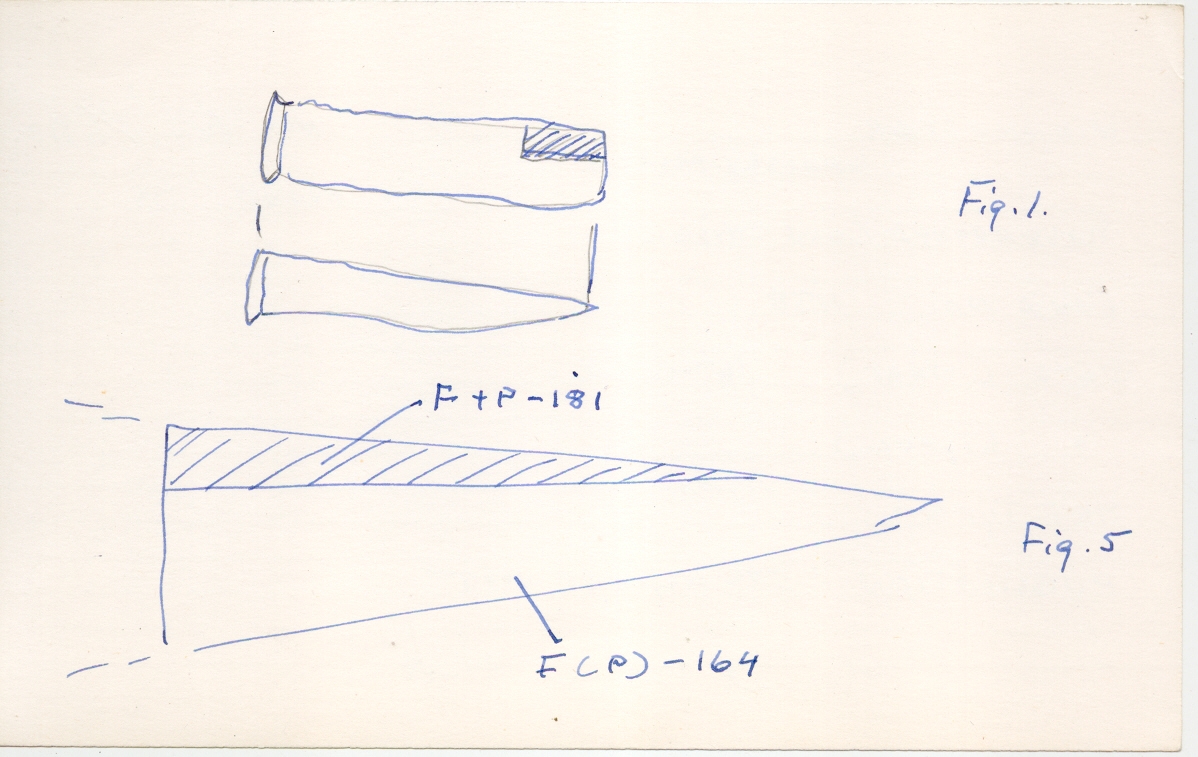 Fig. 1.
F + P - 181
Fig. 5
F (P) - 164